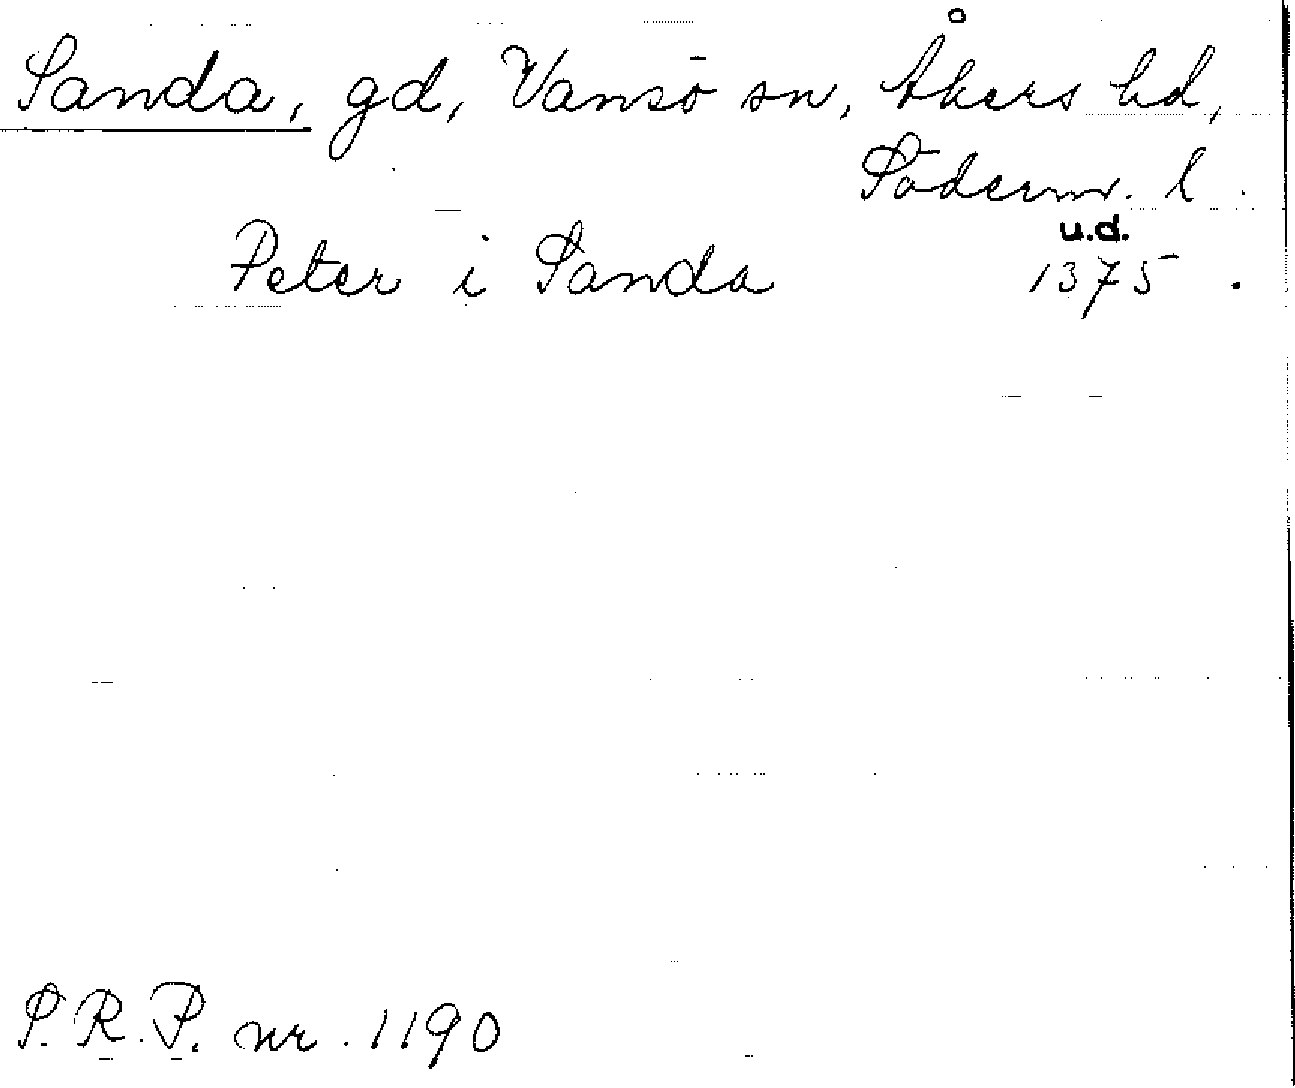 Sanda, gd, Vansö sn, Åkers hd,
Söderm. l.
Peter i Sanda u.d. 1375.
S.R.P. nr. 1190